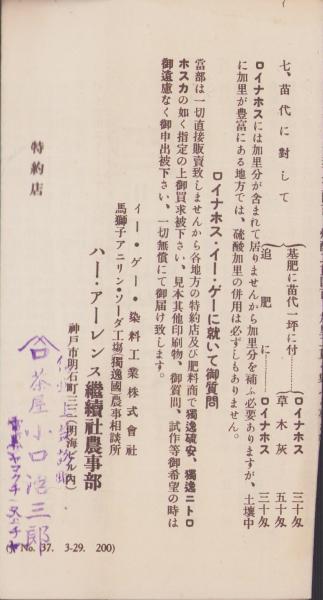 七、苗代に對して
基肥に苗代一坪に付
ロイナホス 三十匁
草木灰 五十匁
追肥に ロイナホス 三十匁
ロイナホスには加里分が含まれて居りませんから加里分を補ふ必要ありますが、土壤中
に加里が豊富にある地方では、硫酸加里の併用は必ずしもありません。
ロイナホス・イー・ゲーに就いて御質問
當部は一切直接販賣致しませんから各地方の特約店及び肥料商で獨逸硫安、獨逸ニトロ
ホスカの如く指定の上御買求被下さい、見本其他印刷物、御質問、試作等御希望の時は
御遠慮なく御申出被下さい、一切無償にて御届け致します。
イー・ゲー・染料工業株式會社
馬獅子アニリン・ソーダ工場獨逸國農事相談所
ハー・アーレンス繼續社農事部
神戸市明石町三二(明海ビル内)
特約店
茶屋 小口浩三郎
No. 37. 3-29. 200)